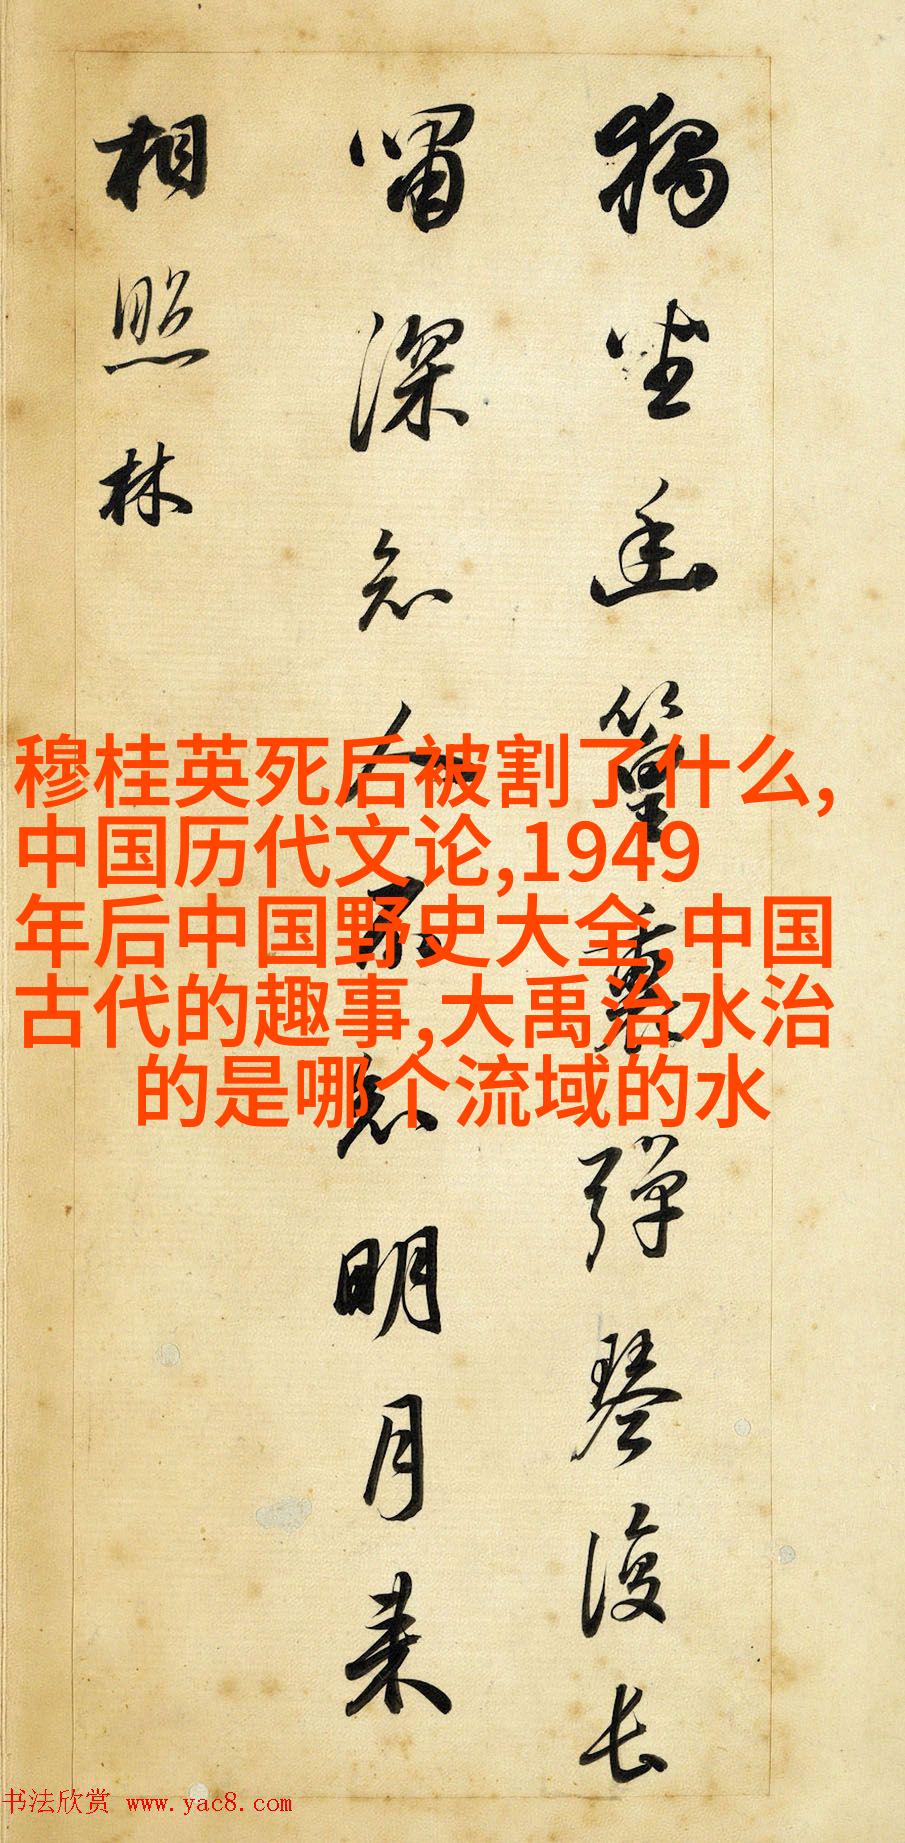 獨坐幽篁裏彈琴復長
嘯深知人不知明月来
相照林
穆桂英死后被割了什么,
中国历代文论,1949
年后中国野史大全,中国
古代的趣事,大禹治水治
的是哪个流域的水
书法欣赏 www.yac8.com